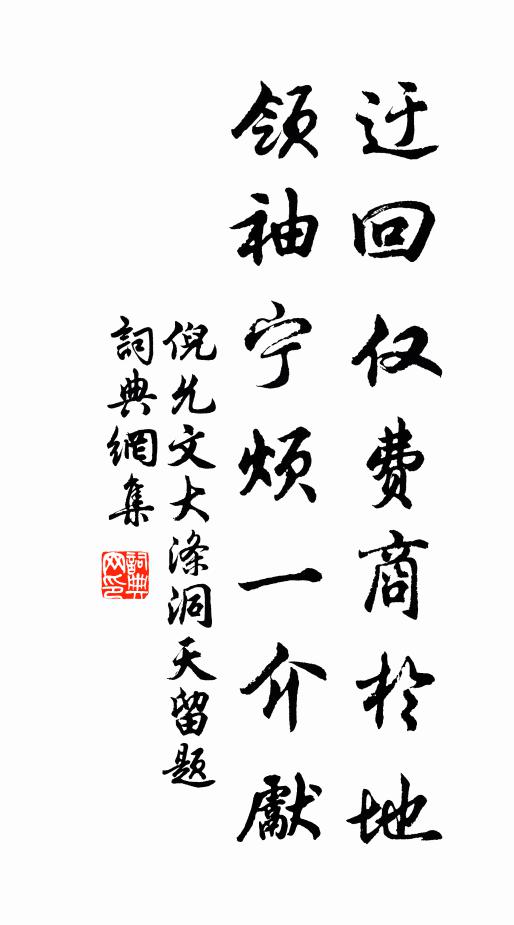 迂回仅费商於地
领袖宁烦一介獻
倪允文大涤洞天留题
詞典網集
詞典网印